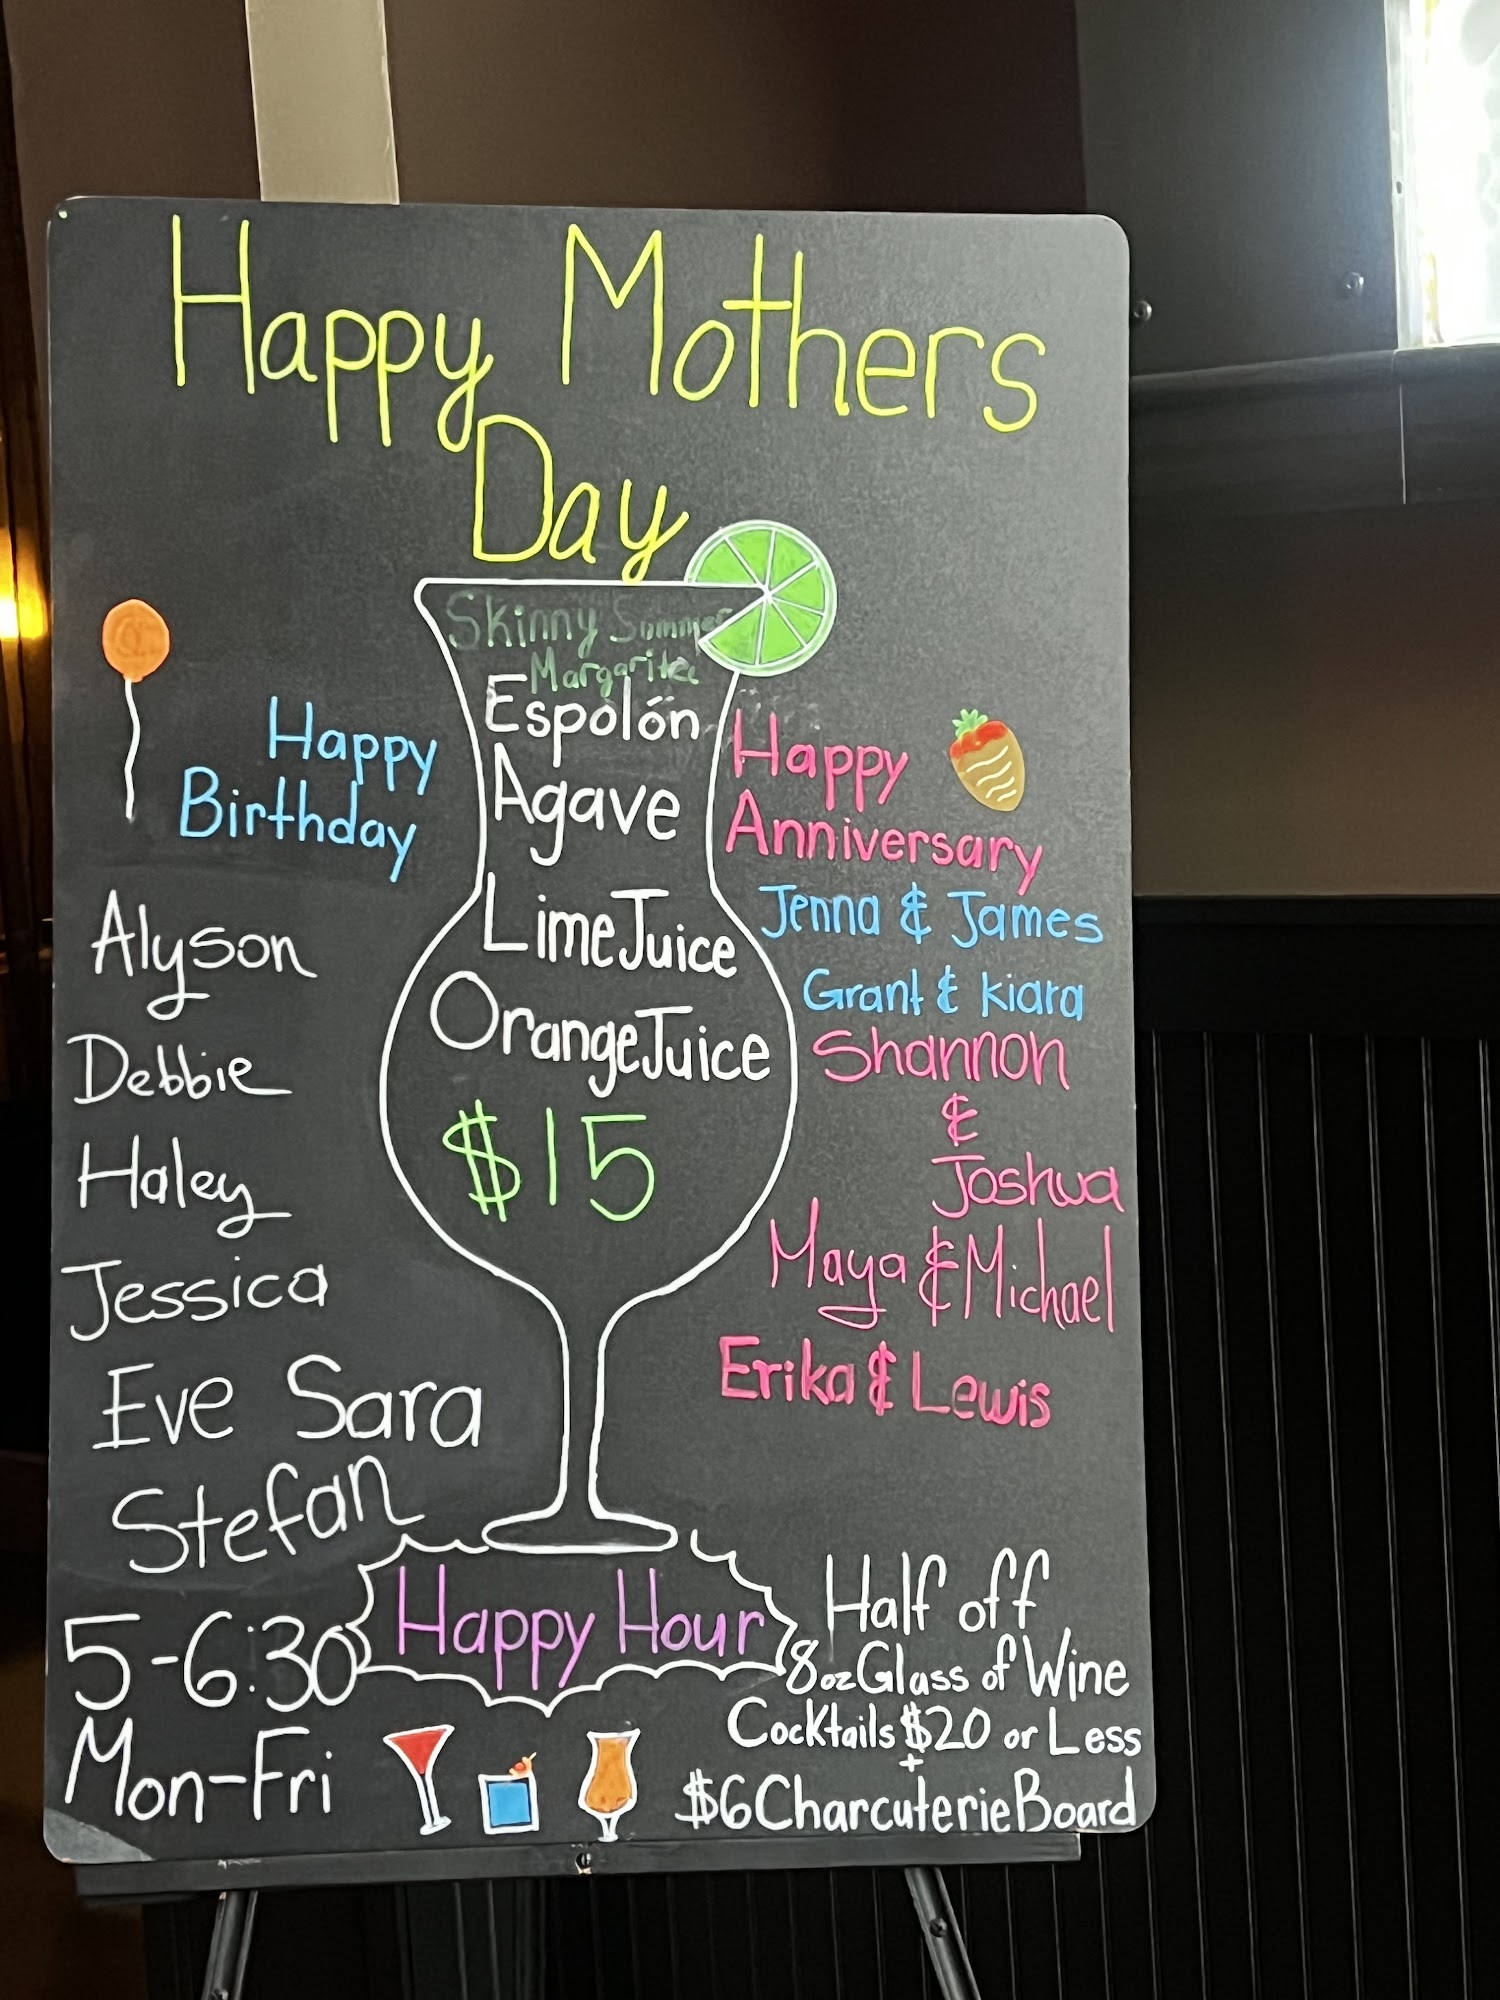 Happy Mothers
Day
Skinny Summer
Margarita
Espolón
Agave
Lime Juice
Orange Juice
$15
Happy
Birthday
Alyson
Debbie
Haley
Jessica
Eve Sara
Stefan
Happy
Anniversary
Jenna & James
Grant & Kiara
Shannon
&
Joshua
Maya & Michael
Erika & Lewis
Happy Hour
5-6:30
Mon-Fri
Half off
8oz Glass of Wine
Cocktails $20 or Less
+
$6 Charcuterie Board